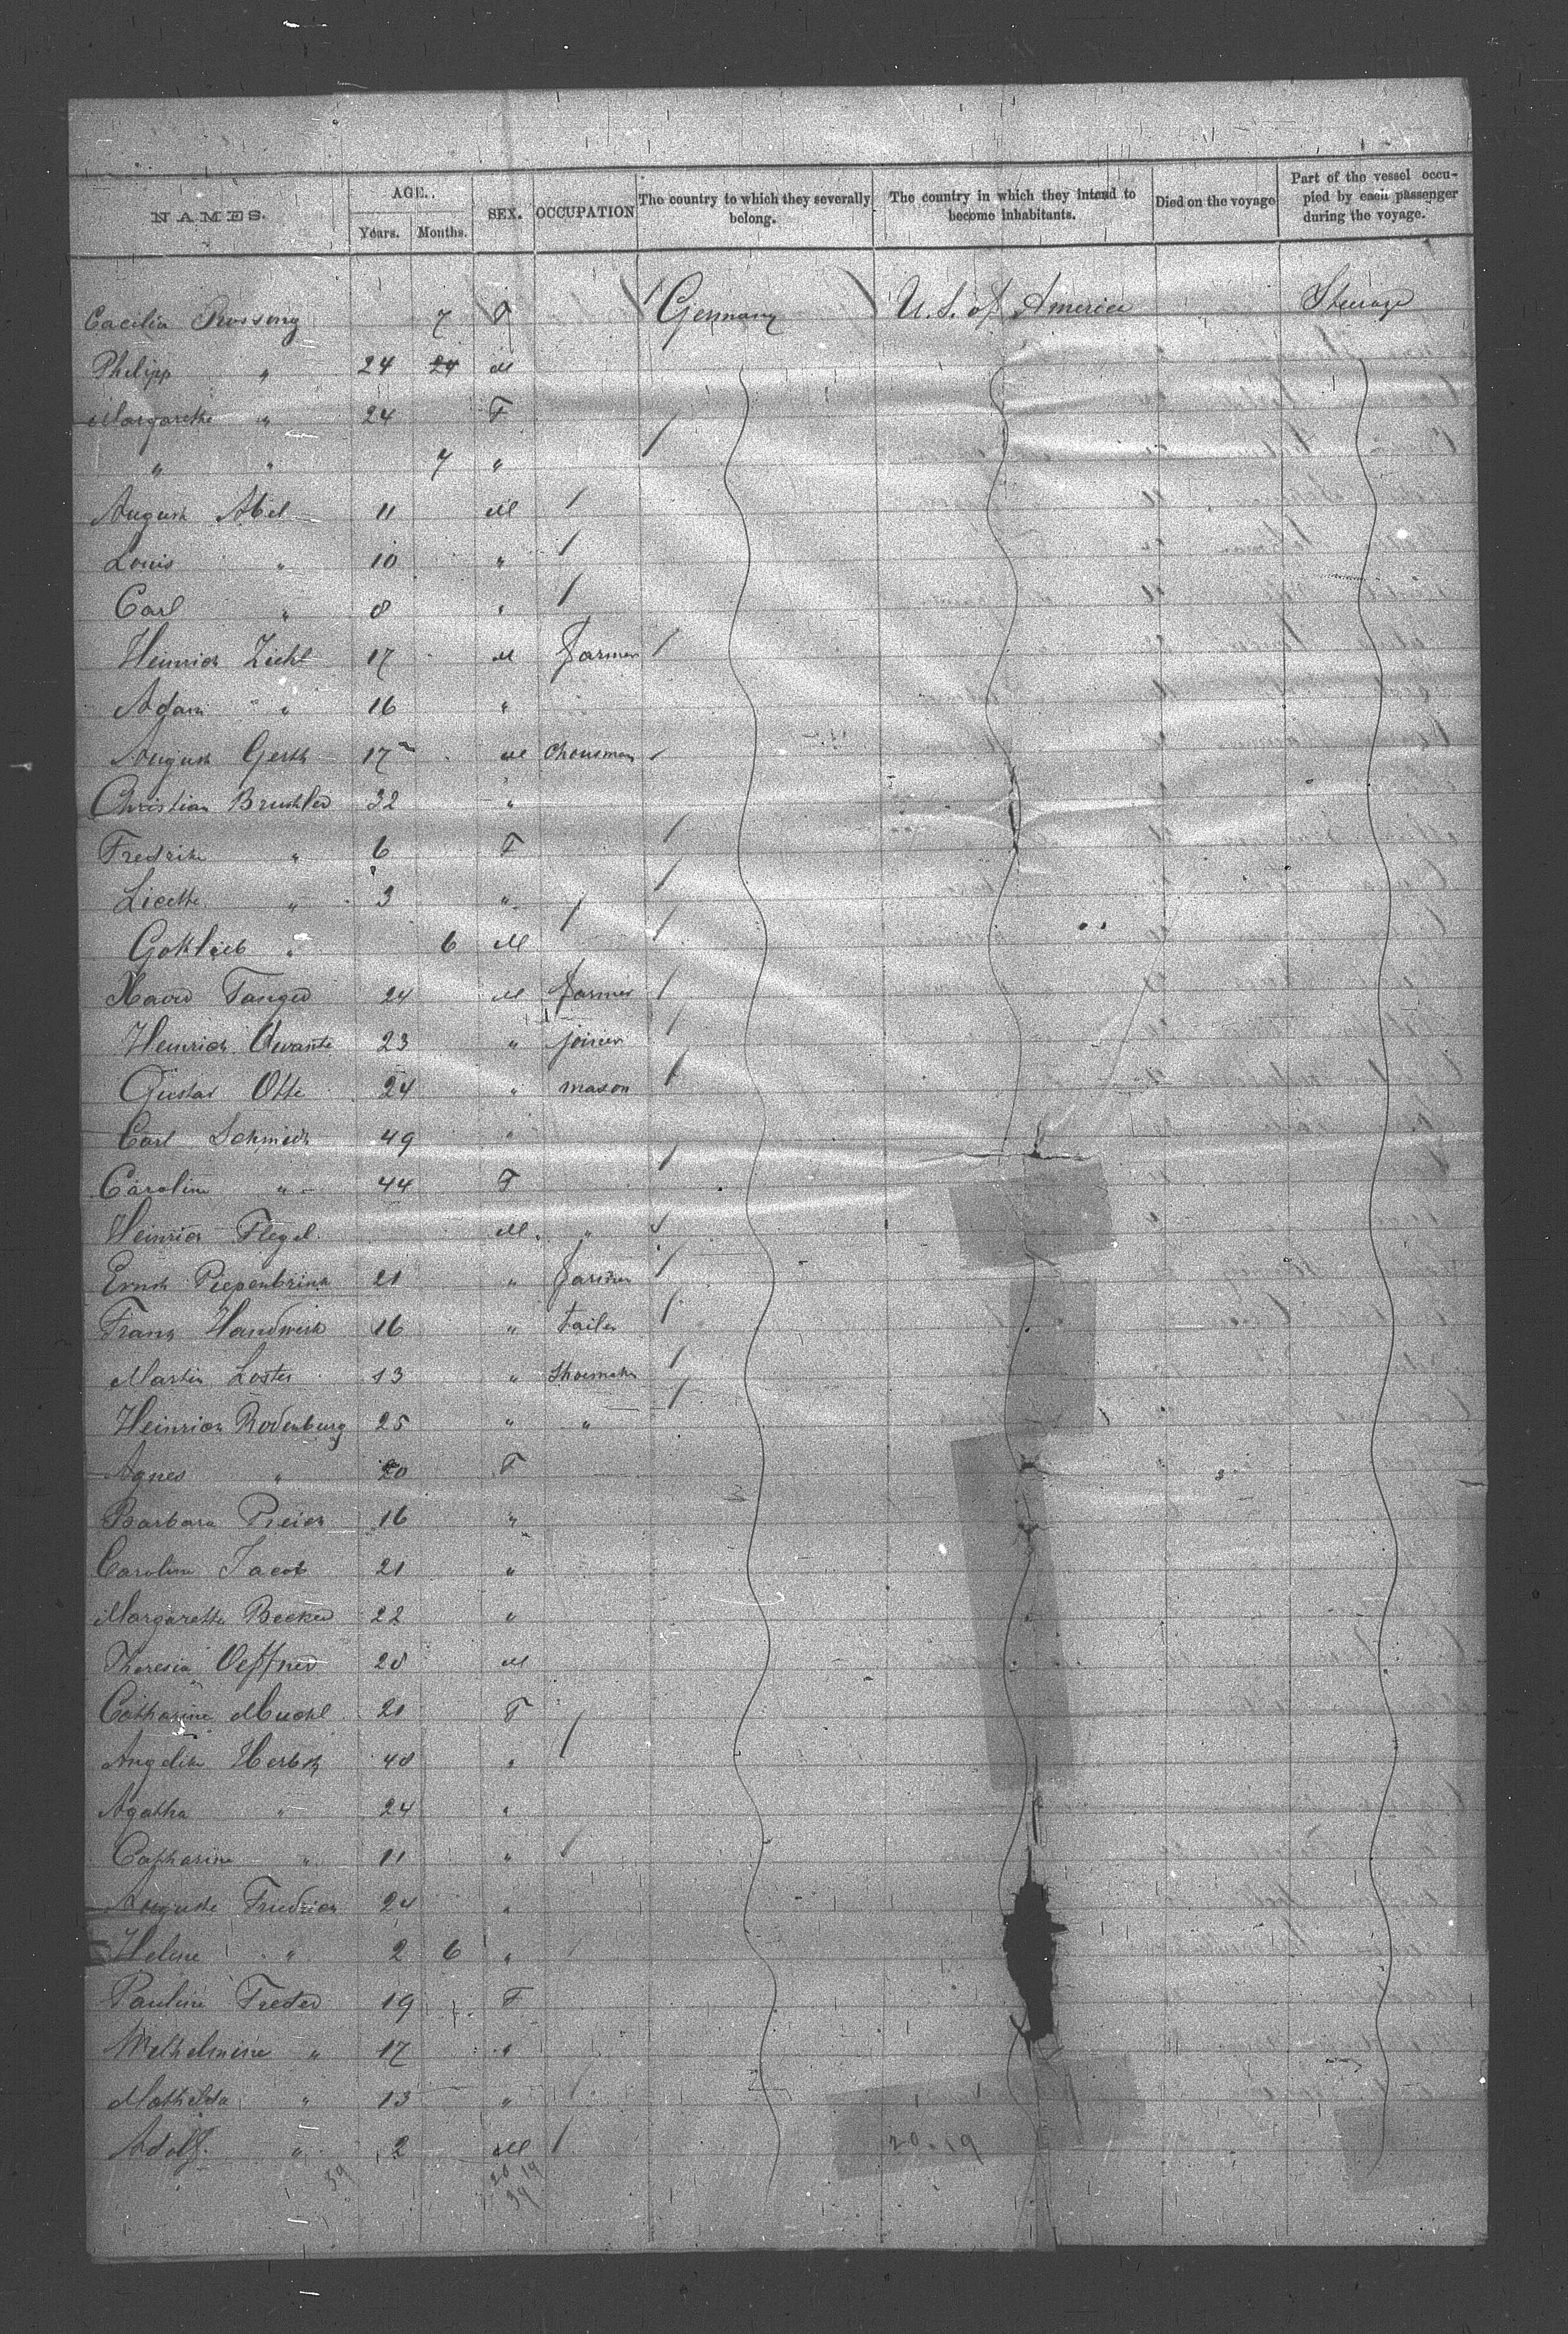 NAMES. AGE. SEX. OCCUPATION The country to which they severally belong. The country in which they intend to become inhabitants. Died on the voyage Part of the vessel occupied by each passenger during the voyage.
Years. Months.
Cacilia 7 F Germany U.S. of America Steerage
Philipp " 24 24 M
Margarethe " 24 F
" " 7 "
August Abel 11 M
Louis " 10 "
Carl " 8 "
Heinrich Ziehl 17 M farmer
Adam " 16 "
August Gerth 17 M
Christian 32 "
Fredrike " 6 F
Licette " 3 "
Gottlieb " 6 M
Xaver Tanger 24 M farmer
Heinrich 23 " joiner
Gustav Otte 24 " mason
Carl Schmidt 49 "
Caroline " 44 F
Heinrich Flegel M "
Ernst Piepenbrink 21 " farmer
Franz Handwerk 16 " tailer
Martin Loster 13 " Shoemaker
Heinrich Rodenburg 25 " "
Agnes " 20 F
Barbara 16 "
Caroline Jacob 21 "
Margaretha Becker 22 "
Theresia Oeffner 28 M
Catharine Muehl 21 F
Angelika Herbst 48 "
Agatha " 24 "
Catharine " 11 "
Auguste Friedrich 24 "
Helene " 2 6 "
Pauline Treder 19 F
Welhelmine " 17 "
Mathelda " 13 "
Adolf " 2 M
39 20 19 20.19
39